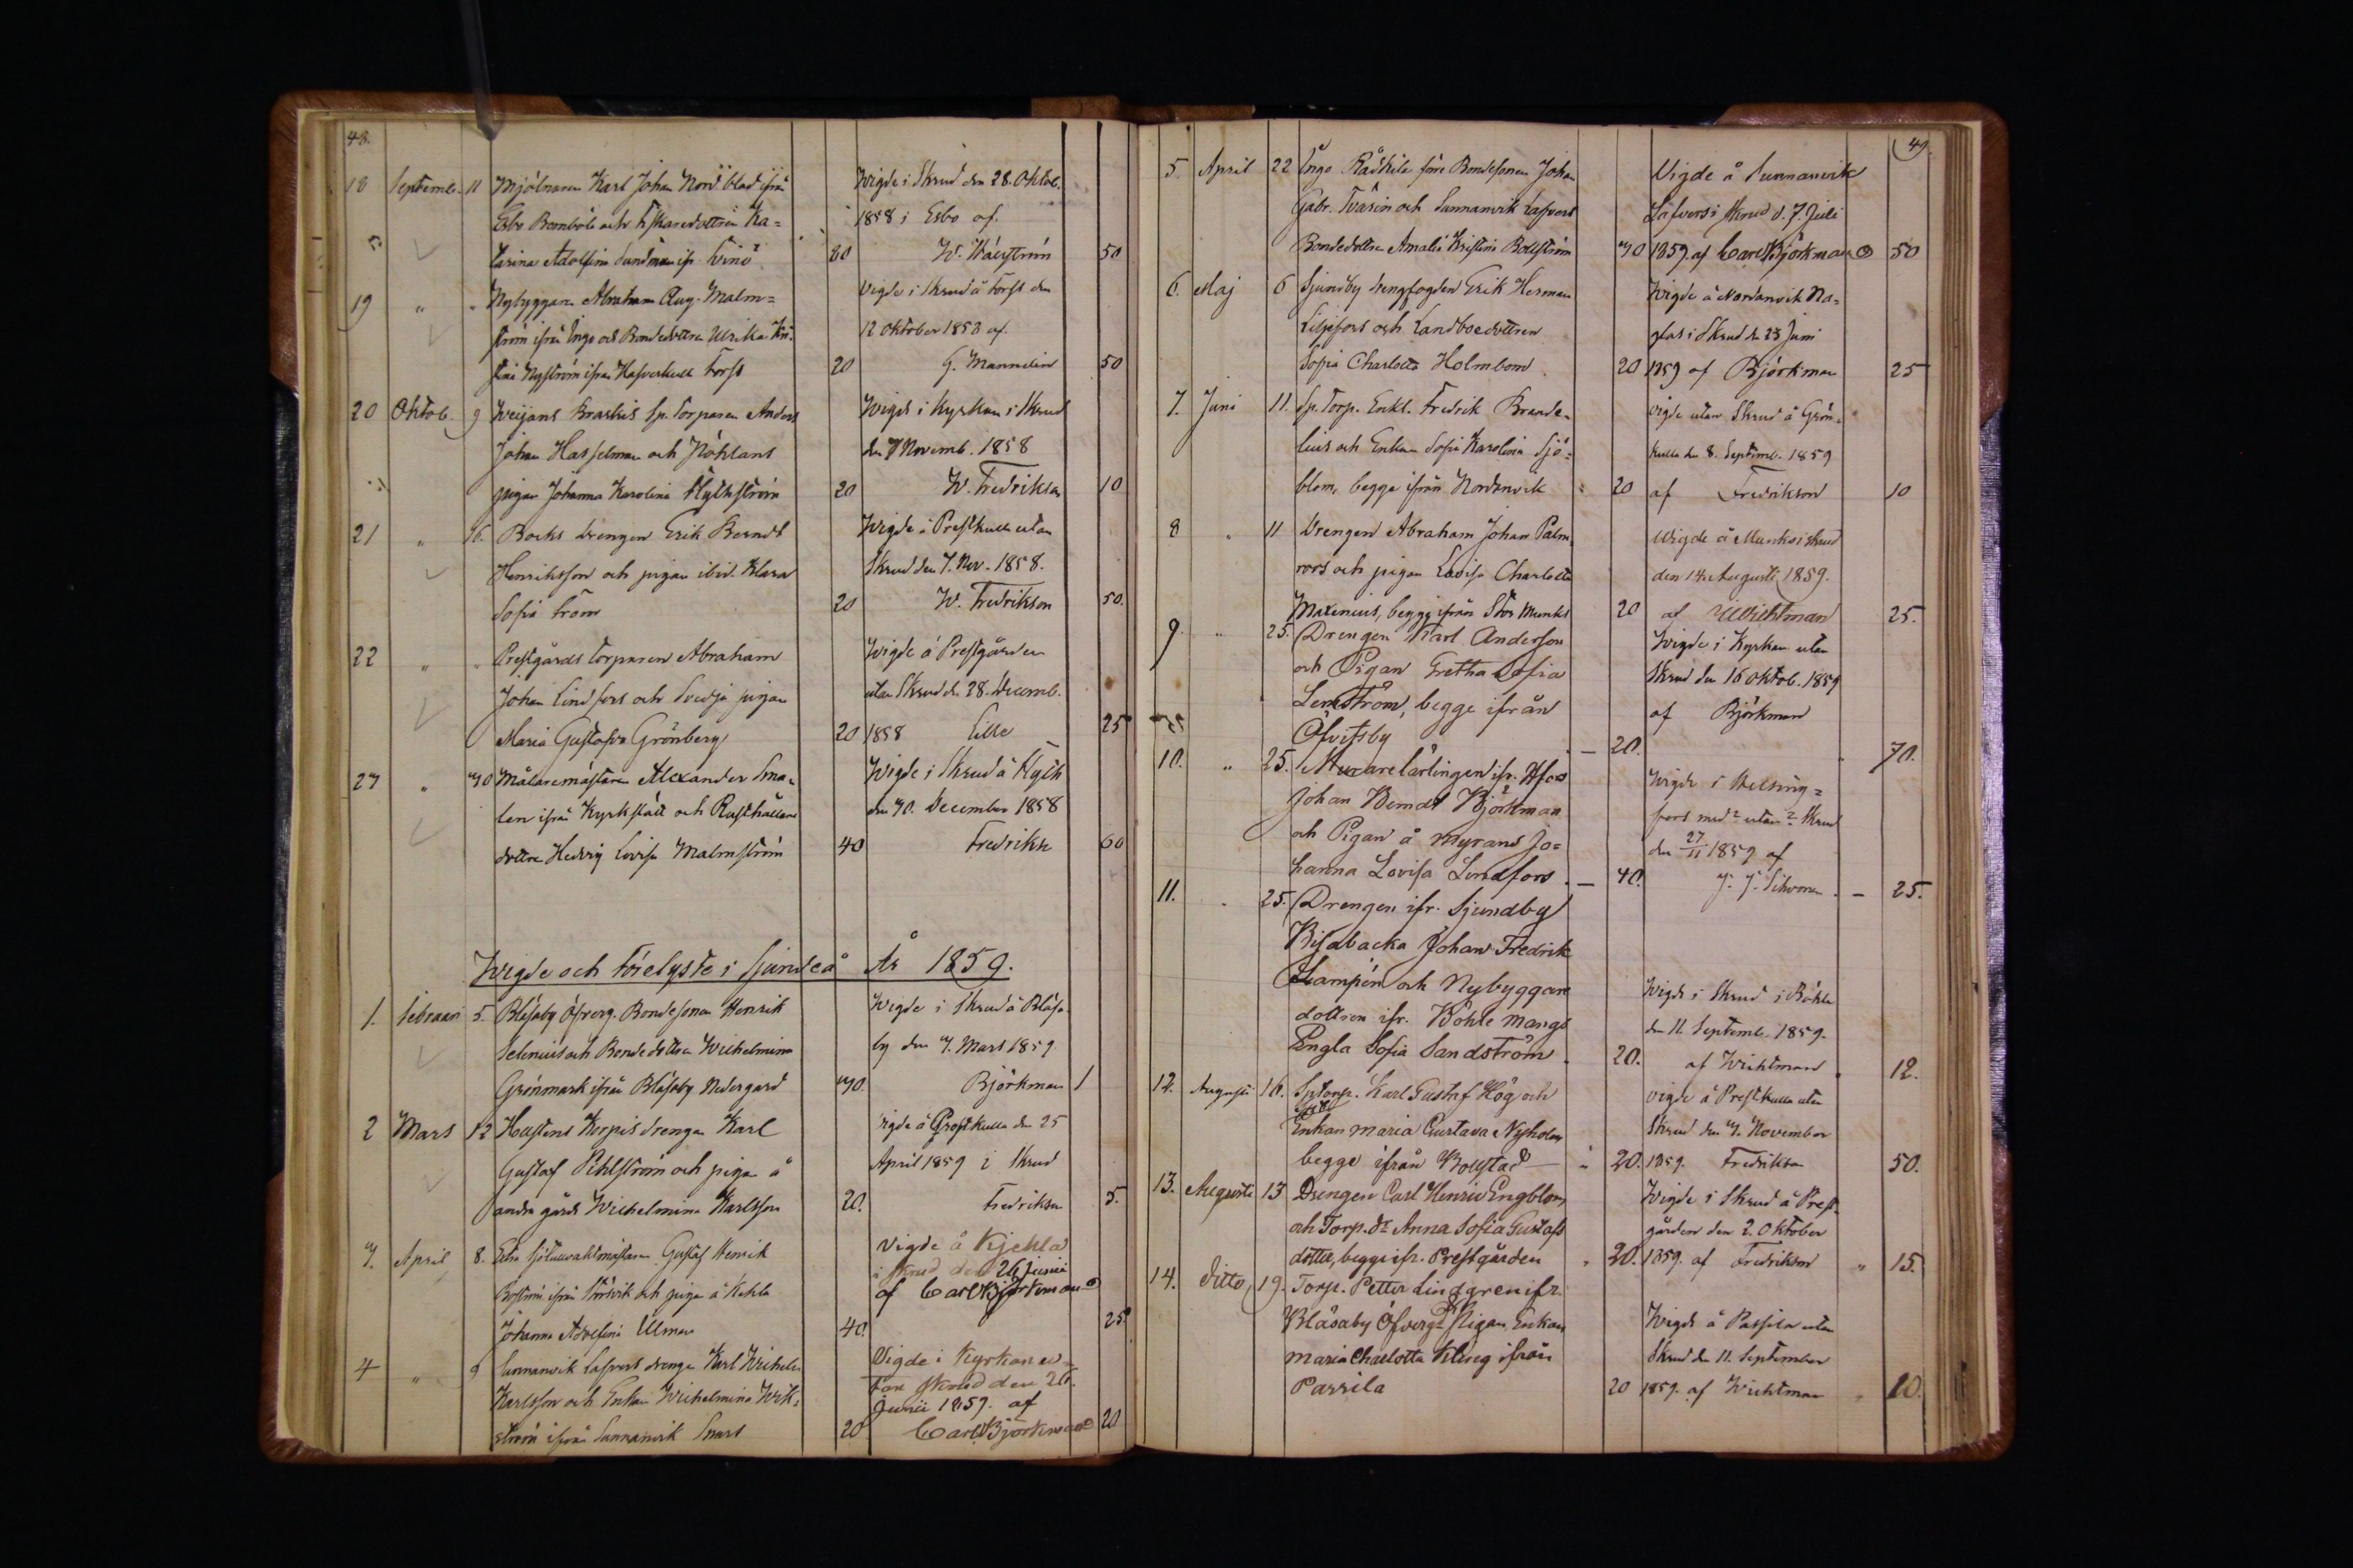 48.
18 Septemb. 11 Mjölnaren Karl Johan Nordblad ifrån Wigde i Skrud den 28. Oktob.
Esbo Bemböle och Fiskaredottren Ka= 1858 i Esbo af
tarina Adolfina Sundman ifr. 20 W. 50
19 " " Nybyggaren Abraham Aug. Malm= Vigde i Skrud å Forss den
ström ifrån Ingo och Bondedottren Ulrika Kri= 12 Oktober 1858 af
stina Nyström ifrån Forss 20 G. Mannelin 50
20 Oktob. 9 Weijans Sp. Torparen Anders Wigde i Kyrkan i Skrud
Johan Hasselman och den 7 Novemb. 1858
pigan Johanna Karolina Flythström 20 W. Fredrikson 10
21 " 16. Backs drengen Erik Berndt Wigde i Prestkulla utan
Henriksson och pigan ibid. Klara Skrud den 7. Nov. 1858.
Sofia Ström 20 W. Fredrikson 50.
22 " " Prestgårds Torparen Abraham Wigde å Prestgården
Johan Lindfors och Svedja pigan utan Skrud d. 28. Decemb.
Maria Gustafva Grönberg 20 1858 Lille 25
27 " 30 Målaremästaren Alexander Sma= Wigde i Skrud å Flyth
len ifrån Kyrkslätt och Rusthållare den 30. December 1858
dottren Hedvig Lovisa Malmström 40 Fredrikson 60
Wigde och Förelyste i Sjundeå År 1859.
1. Februari 5. Blåsaby Öfverg. Bondesonen Henrik Wigde i Skrud å Blåsa
Selenius och Bondedottren Wilhelmina by den 3. Mars 1859
Grönmark ifrån Blåsaby Nedergård 30. Björkman 1
2 Mars 12 Korpis drengen Karl Vigde å Prestkulla den 25
Gustaf Pihlström och pigan å April 1859 i Skrud
andra gårds Wilhelmina Karlsson 20. Fredrikson 5.
3. April 8. Gustaf Henrik Vigde å Kjehla
Boström ifrån Störsvik och pigan å Kehla i Skrud den 26 Junii
Johanna Adolfina Ulman 40. af Carl Björkman 25
4 " 9 Sunnanvik Lafvars drengen Karl Wilhelm Vigde i Kyrkan u=
Karlsson och Enkan Wilhelmina Wik= tan Skrud den 26.
ström ifrån Sunnanvik Junii 1859. af
20 Carl Björkman 20
49.
5. April 22 Ingo Råskila förre Bondesonen Johan Vigde å Sunnanvik
Gabr. och Sunnanvik Lafvars Lafvars i Skrud d. 7. Juli
Bondedottren Amalia Kristina Bollström 30 1859 af Carl Björkman 50
6. Maj 6 Sjundby drengfogden Erik Herman Wigde å Nordanvik Na=
Liljefors och Landboedottren glas i Skrud d. 23 Juni
Sofia Charlotta Holmbom 20 1859 af Björkman 25
7. Juni 11. Sp. Torp. Enkl. Fredrik Brande= Vigde utan Skrud å Grön=
lius och Enkan Sofia Karolina Sjö= kulla den 8. Septemb. 1859
blom, begge ifrån Nordanvik 20 af Fredrikson 10
8 " 11 Drengen Abraham Johan Palm= Wigde å Munks i Skrud
roos och pigan Lovisa Charlotta den 14 Augusti 1859.
Maxenius, begge ifrån Stor Munks 20 af Wichtman 25.
9. " 25. Drengen Karl Anderson Wigde i Kyrkan utan
och Pigan Gretha Sofia Skrud den 16 Oktob. 1859
Lemström, begge ifrån af Björkman
Öfvitsby — 20. 70.
10. " 25. Murare lärlingen ifr. Hfors Wigde i Helsing=
Johan Berndt Björkman fors med utan Skrud
och Pigan å Myrans Jo= den 27/11 1859 af
hanna Lovisa Lindfors. — 40. J. J. — 25.
11. " 25. Drengen ifr. Sjundby
Bisabacka Johan Fredrik
Lampén och Nybyggare Wigde i Skrud i Böhle
dottren ifr. Böhle Mangs den 11 Septemb. 1859.
Engla Sofia Sandström. 20. af Wichtman. 12.
12. Augusti 16. Sptorp. Karl Gustaf Hög och Vigde å Prestkulla utan
Enkan Maria Gustava Nyholm Skrud den 3. November
begge ifrån Bollstad — 20. 1859. Fredrikson 50.
13. Augusti 13 Drengen Carl Henric Engblom, Wigde i Skrud å Prest=
och Torp. dr Anna Sofia Gustafs gården den 2. Oktober
dotter, begge ifr. Prestgården " 20. 1859. af Fredrikson " 15.
14. Ditto, 19. Torp. Petter Lindgren ifr.
Blåsaby Öfverg. Pigan, Enkan Wigde å Passila utan
Maria Charlotta Kling ifrån Skrud d. 11. September
Passila 20 1859. af Wichtman 10.